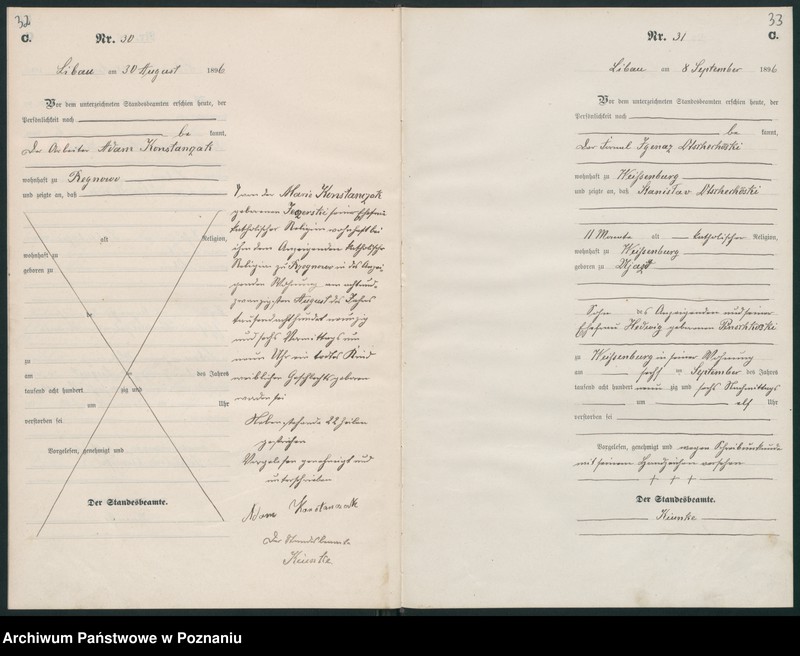 32
C.
Nr. 30
Libau am 30 August 1896
Vor dem unterzeichneten Standesbeamten erschien heute, der
Persönlichkeit nach
be kannt,
Der Arbeiter Adam Konstanzak
wohnhaft zu Regnowo
und zeigte an, daß
alt Religion,
wohnhaft zu
geboren zu
be
zu
am ten des Jahres
tausend acht hundert zig und
um Uhr
verstorben sei
Vorgelesen, genehmigt und
Der Standesbeamte.
von der Marie Konstanzak
geborenen Jezerski seiner Ehefrau
katholischer Religion wohnhaft bei
ihm dem Anzeigenden katholischer
Religion zu Regnowo in des Anzei
genden Wohnung am acht und
zwanzigsten August des Jahres
tausend acht hundert neunzig
und sechs Vormittags um
neun Uhr ein todtes Kind
weiblichen Geschlechts geboren
worden sei
Nebenstehende 22 Zeilen
gestrichen
Vorgelesen genehmigt und
unterschrieben
Adam Konstanzak
Der Standesbeamte
Kiunke
33
C.
Nr. 31
Libau am 8 September 1896
Vor dem unterzeichneten Standesbeamten erschien heute, der
Persönlichkeit nach
be kannt,
Der Ignaz
wohnhaft zu Weißenburg
und zeigte an, daß Stanislav
11 Monate alt katholischer Religion,
wohnhaft zu Weißenburg
geboren zu
Sohn des Anzeigenden und seiner
Ehefrau Hedwig geborenen
zu Weißenburg in seiner Wohnung
am sechs ten September des Jahres
tausend acht hundert neun zig und sechs Nachmittags
um elf Uhr
verstorben sei
Vorgelesen, genehmigt und wegen Schreibunkunde
mit seinem Handzeichen versehen
+ + +
Der Standesbeamte.
Kiunke
Archiwum Państwowe w Poznaniu